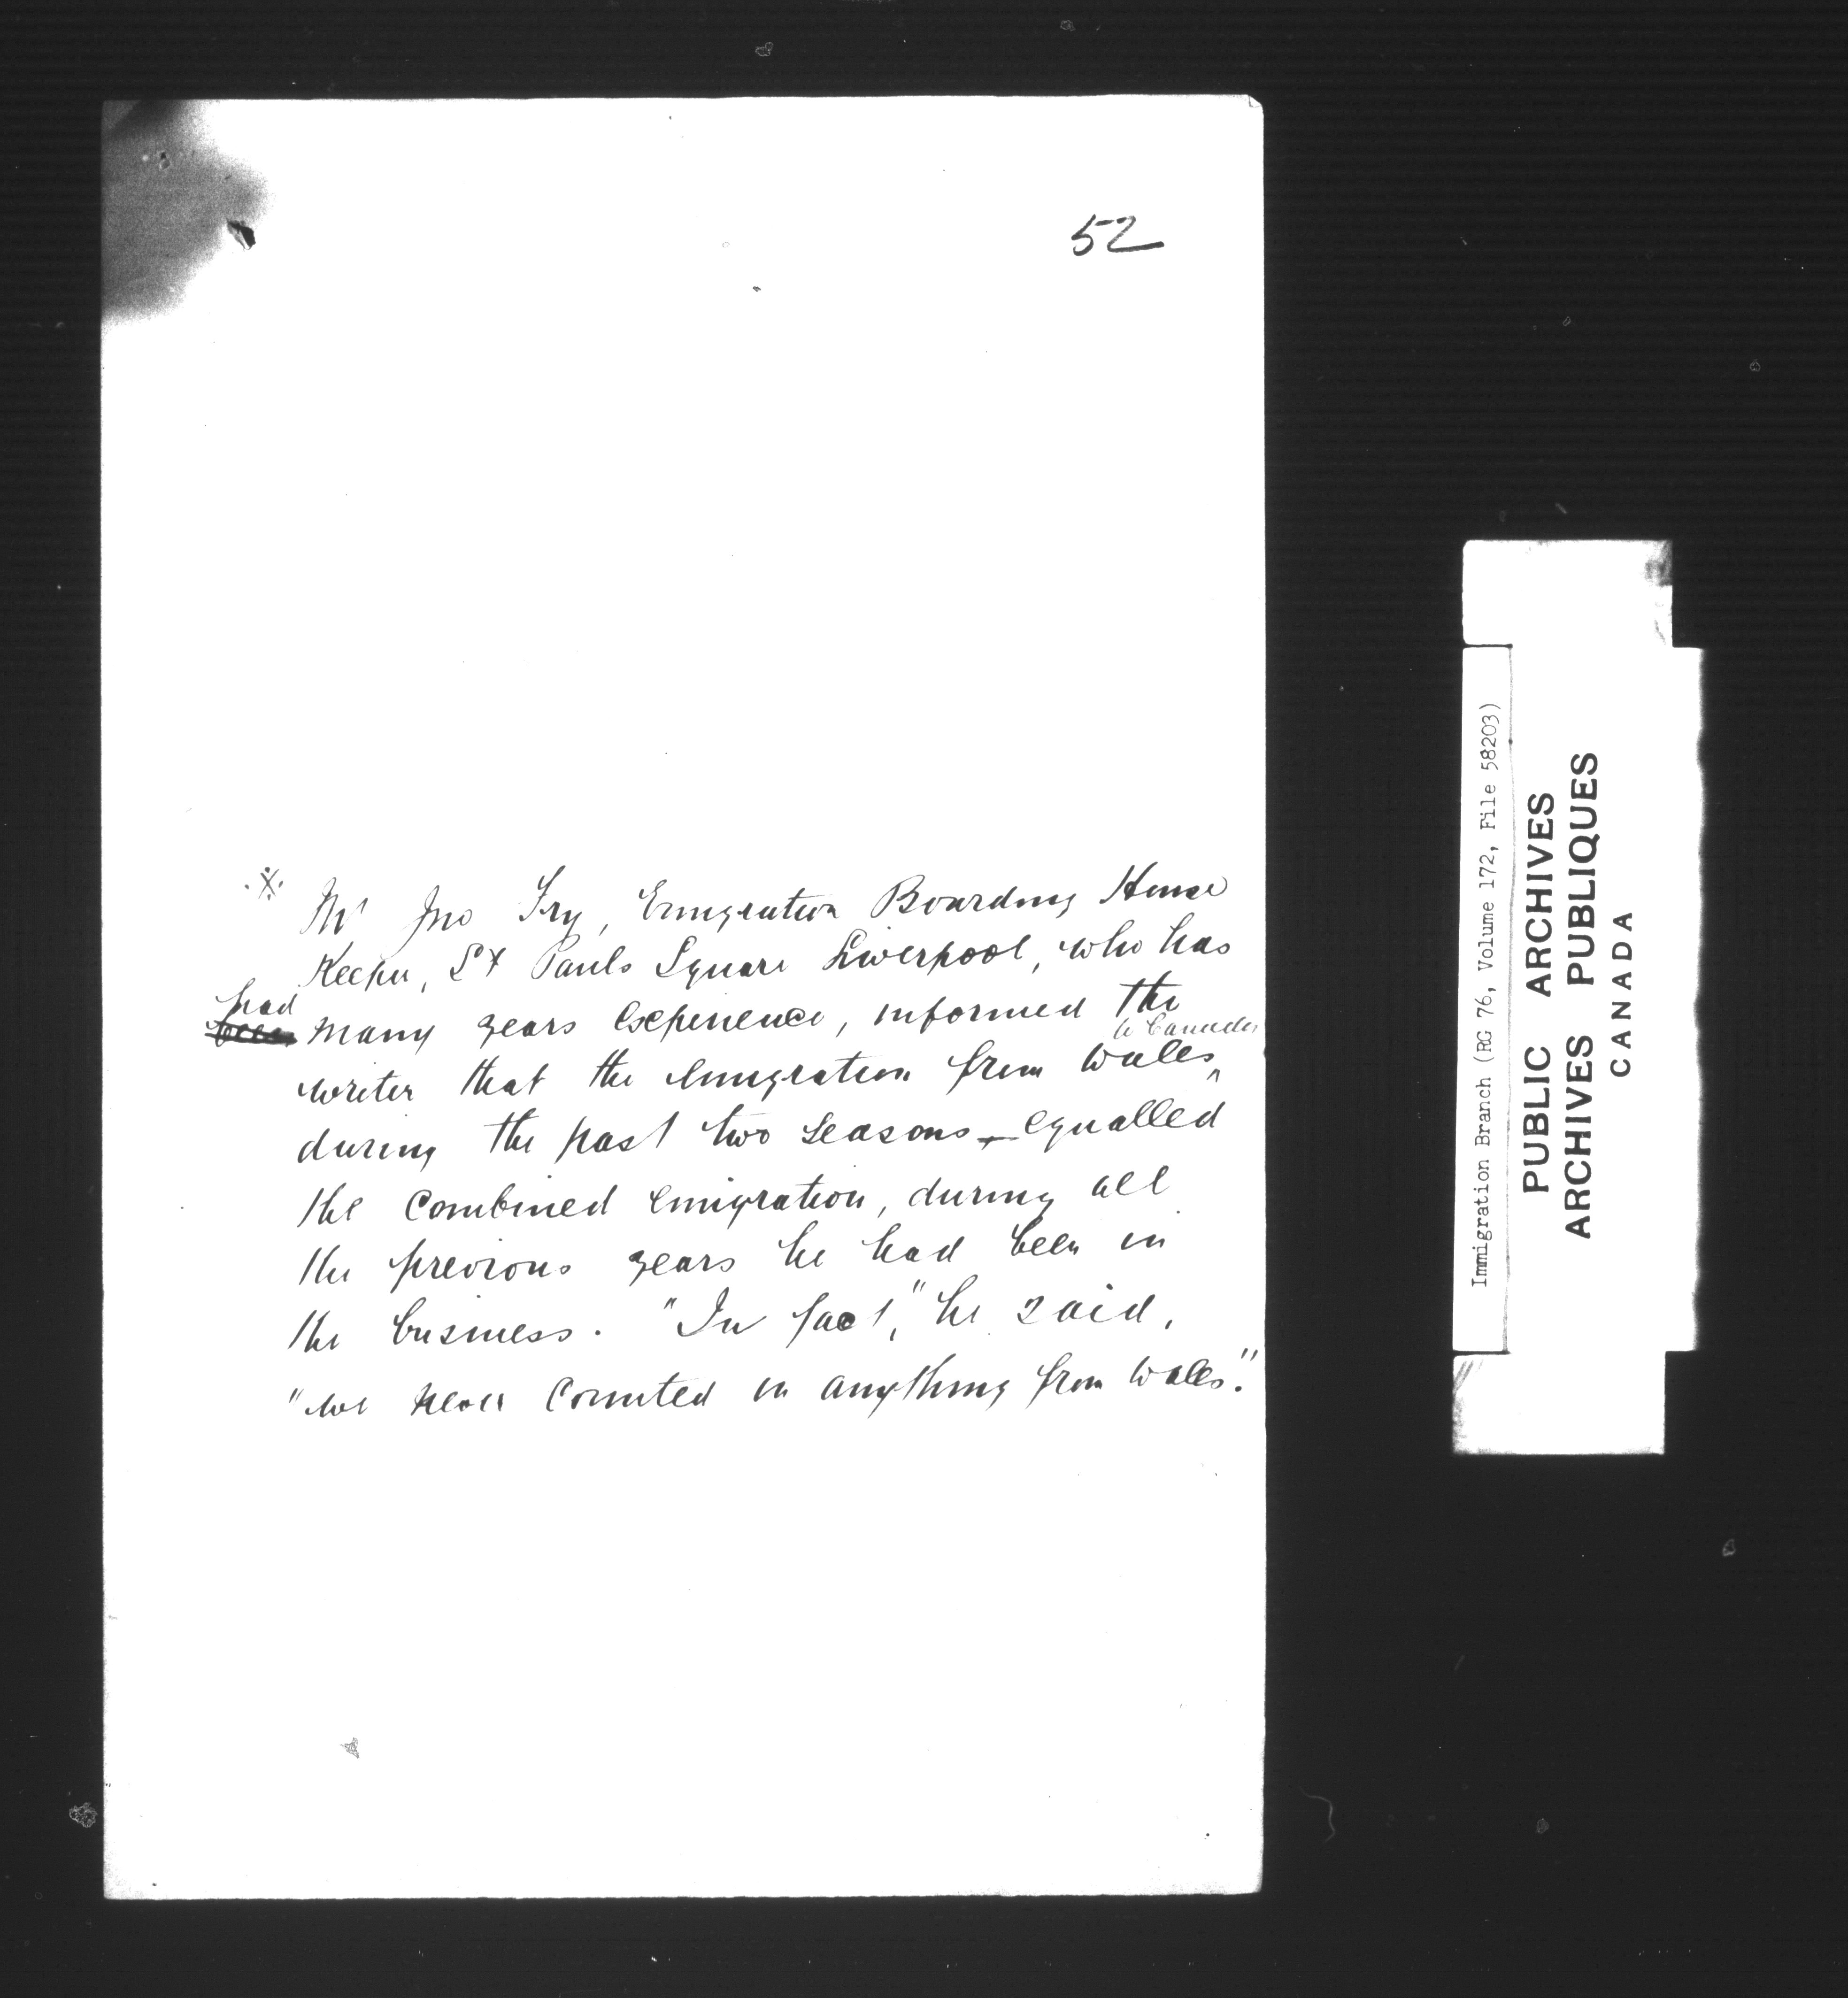 52
※ Mr Jno Fry, Emigration Boarding House
Keeper, St Pauls Square Liverpool, who has
had
been many years experience, informed the
to Canada
writer that the emigration from Wales
during the past two seasons - equalled
the combined emigration, during all
the previous years he had been in
the business. "In fact," he said,
"we never counted on anything from Wales."
Immigration Branch (RG 76, Volume 172, File 58203)
PUBLIC ARCHIVES
ARCHIVES PUBLIQUES
CANADA